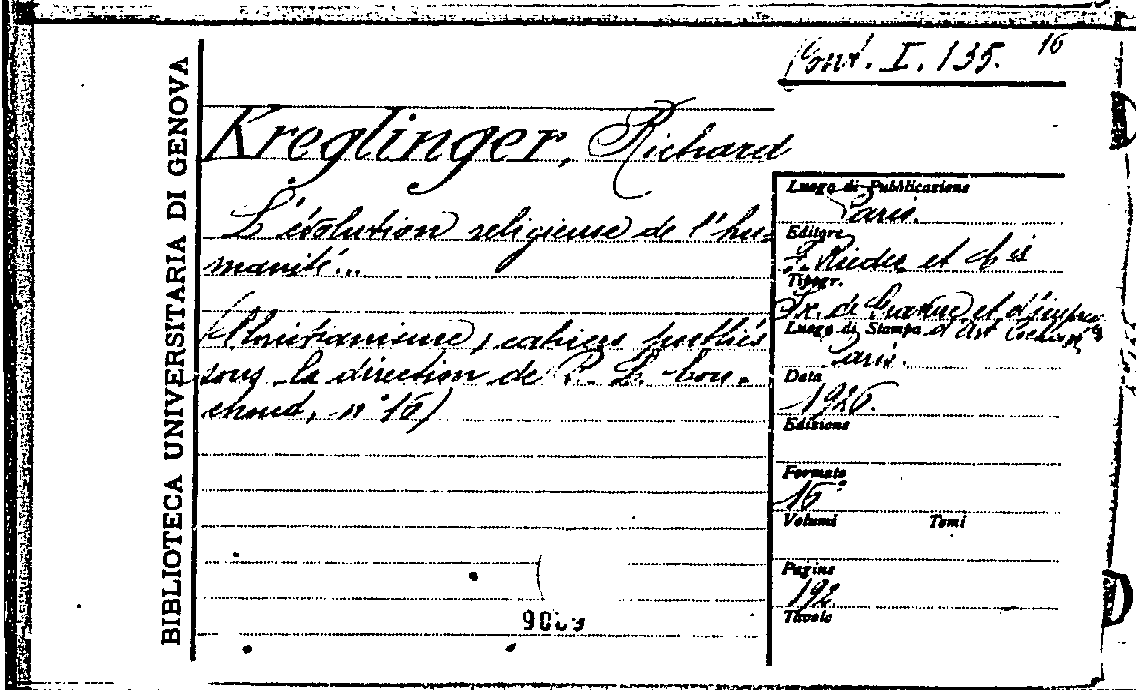 Cont. I. 135. 16
BIBLIOTECA UNIVERSITARIA DI GENOVA
Kreglinger, Richard
L'évolution religieuse de l'hu-
manité...
(Christianisme, cahiers publiés
sous la direction de P. L. Cou-
choud, n° 16)
Luogo di Pubblicazione
Paris.
Editore
F. Rieder et Cis
Tipogr.
de Gravure et d'impres
Luogo di Stampa d'Art
Paris.
Data
1926.
Edizione
Formato
16°
Volumi Tomi
Pagine
192
Tavole